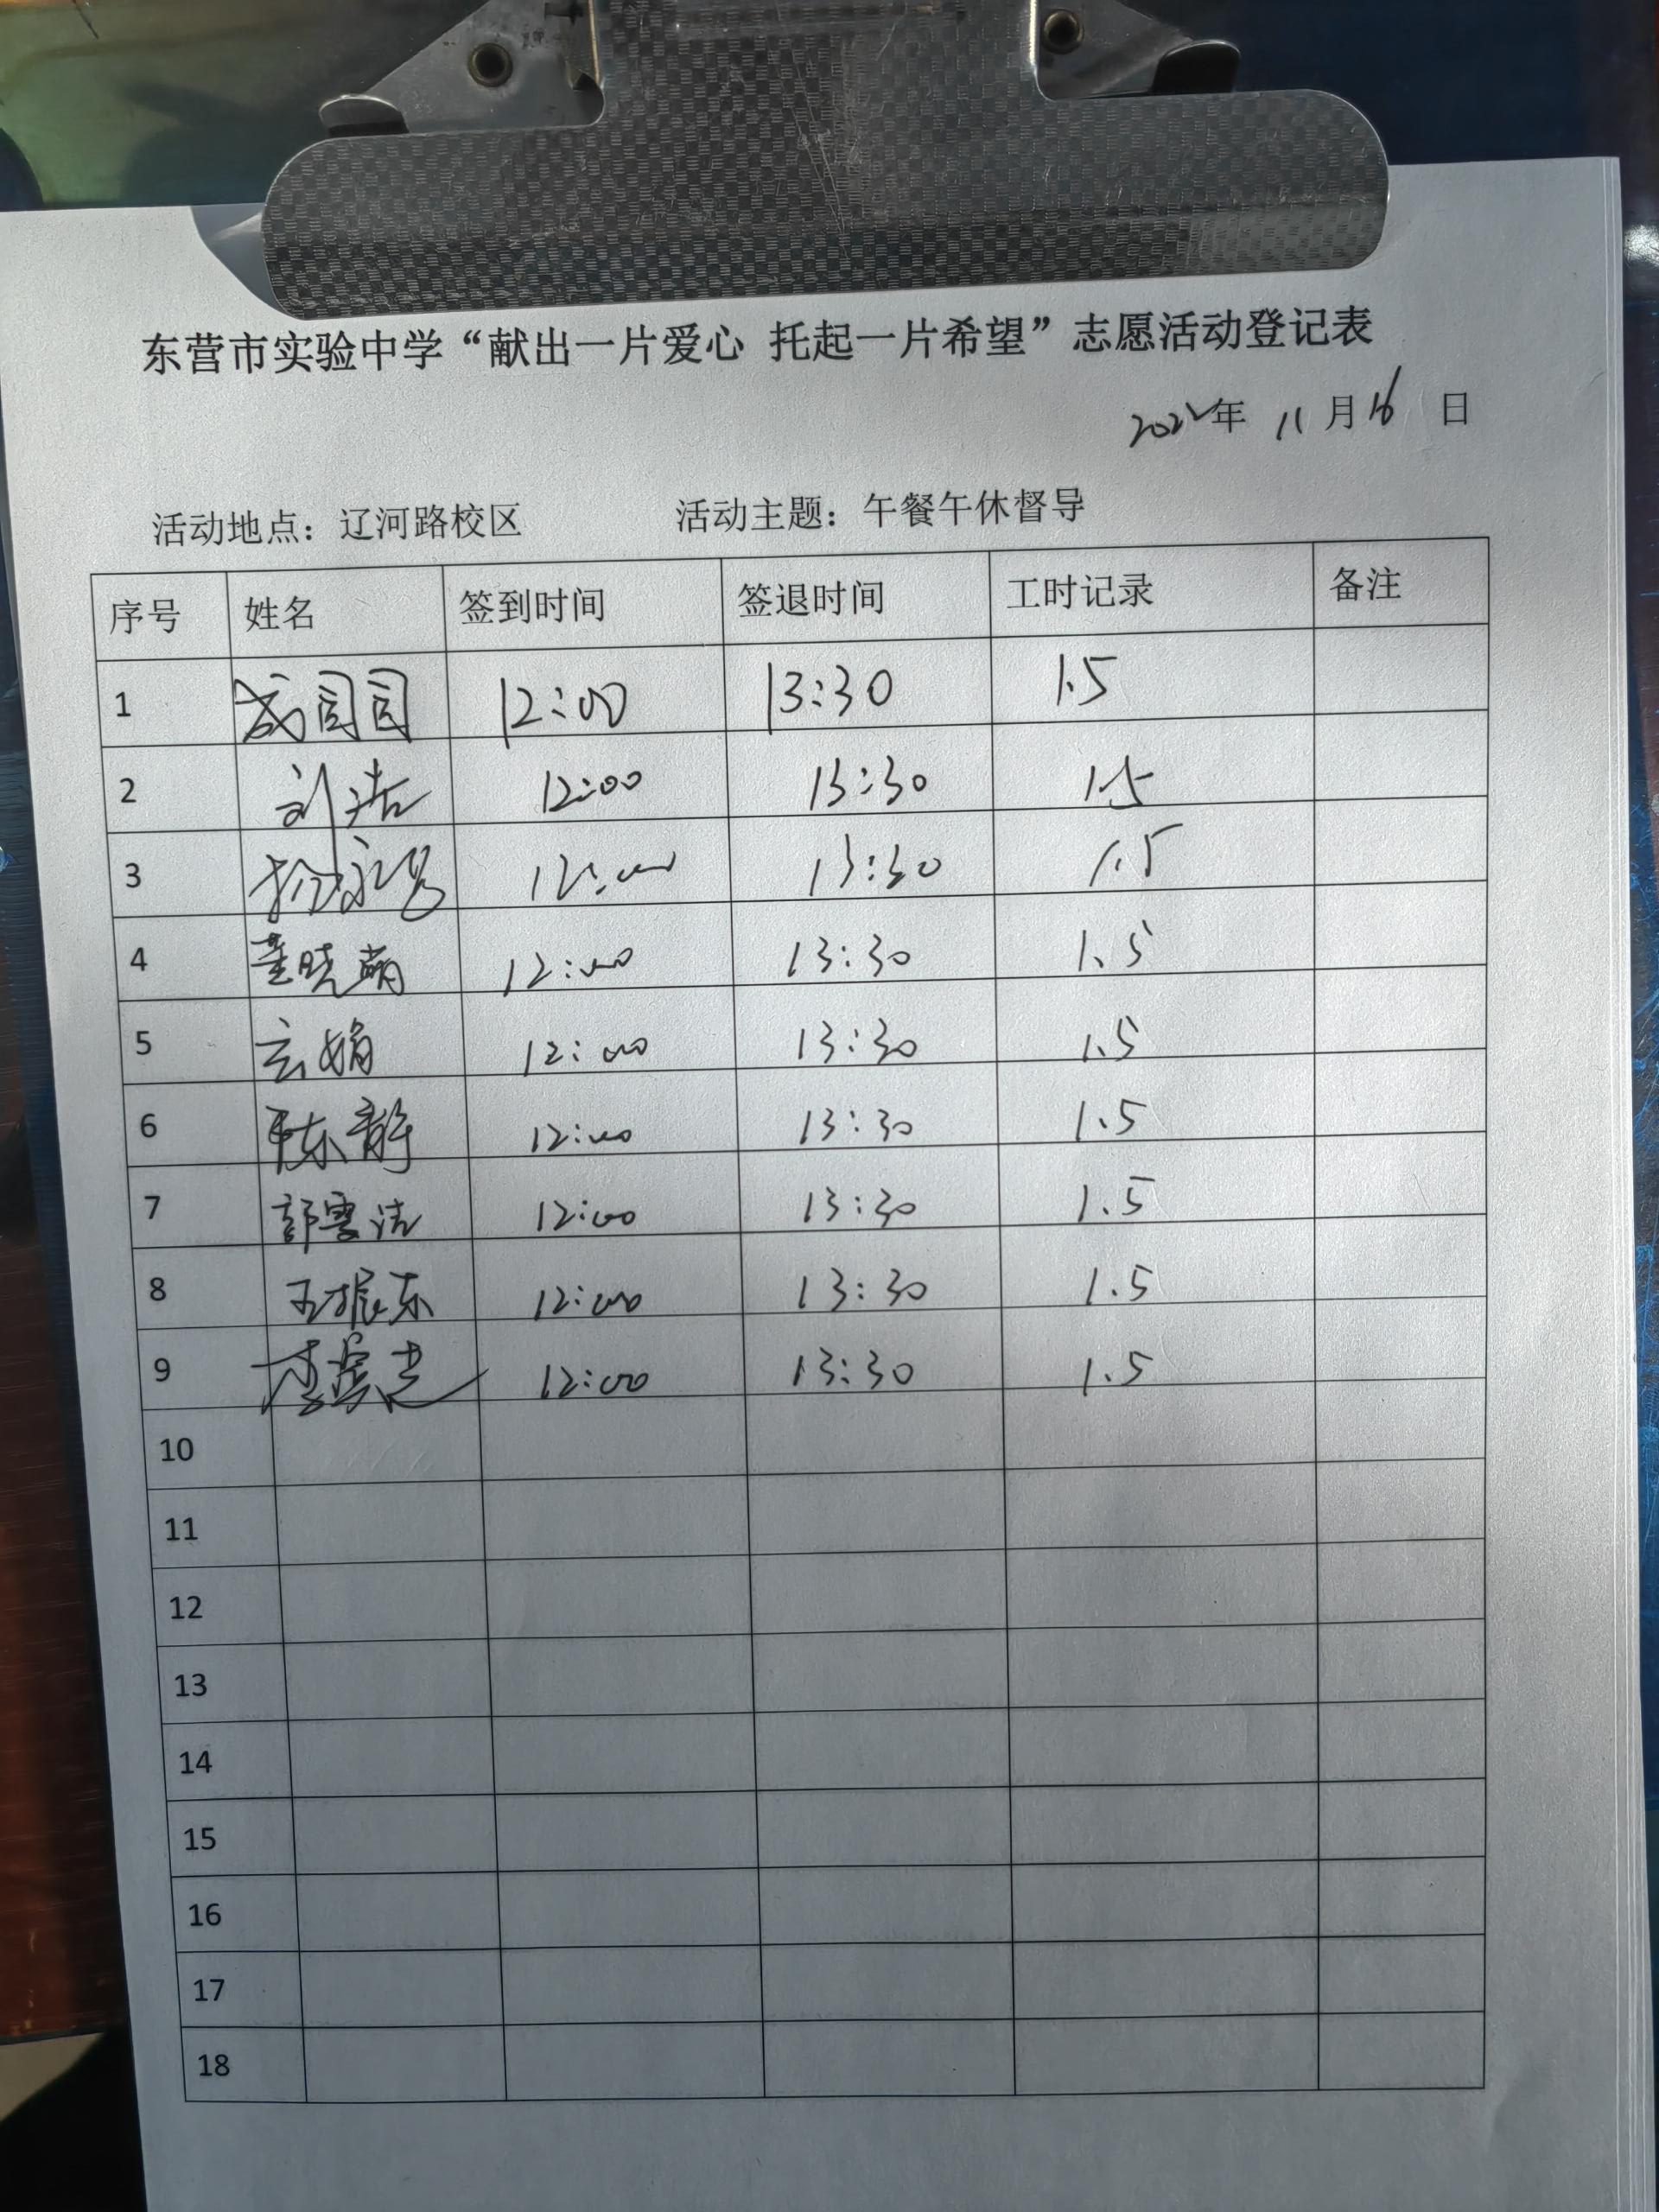 东营市实验中学“献出一片爱心 托起一片希望”志愿活动登记表
2022年 11月16日
活动地点：辽河路校区 活动主题：午餐午休督导
序号 姓名 签到时间 签退时间 工时记录 备注
1 12:00 13:30 1.5
2 刘浩 12:00 13:30 1.5
3 12:00 13:30 1.5
4 董晓萌 12:00 13:30 1.5
5 玄娟 12:00 13:30 1.5
6 陈静 12:00 13:30 1.5
7 郭雯洁 12:00 13:30 1.5
8 王振东 12:00 13:30 1.5
9 12:00 13:30 1.5
10
11
12
13
14
15
16
17
18